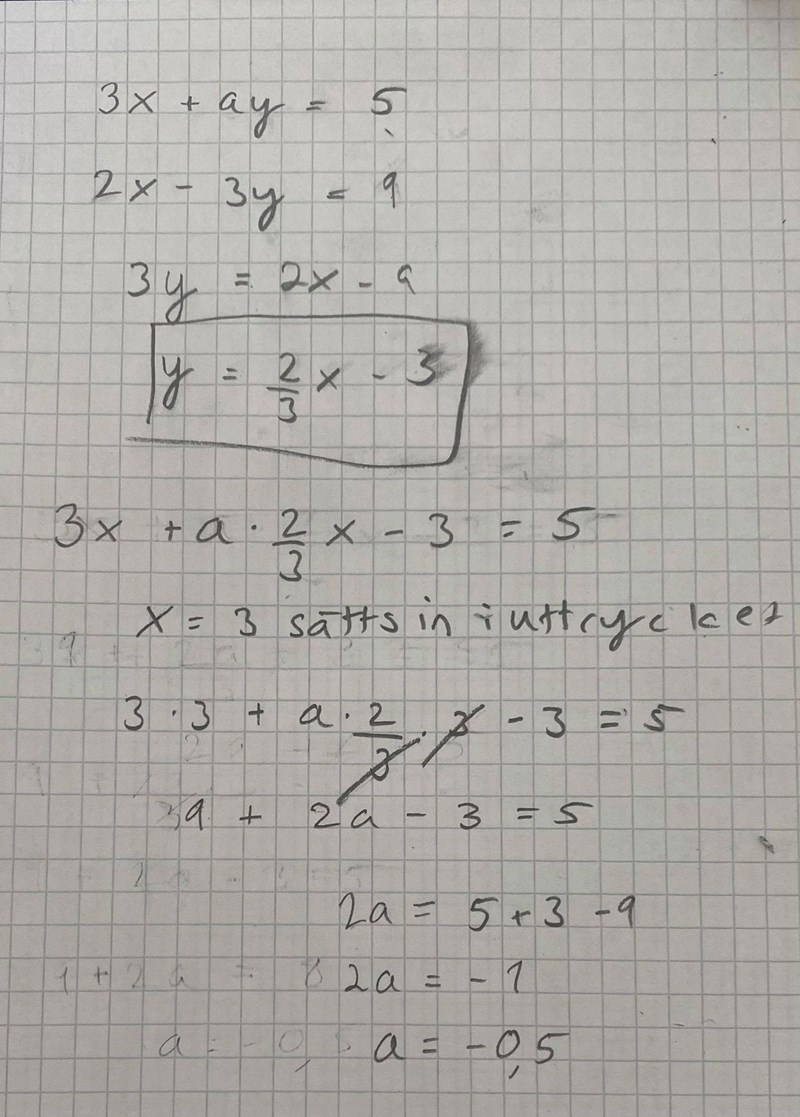 3x + ay = 5
2x - 3y = 9
3y = 2x - 9
y = 2/3 x - 3
3x + a · 2/3 x - 3 = 5
x = 3 sätts in i uttrycket
3 · 3 + a · 2/3 · 3 - 3 = 5
9 + 2a - 3 = 5
2a = 5 + 3 - 9
1 + 2a = 8 2a = -1
a = -0, a = -0,5